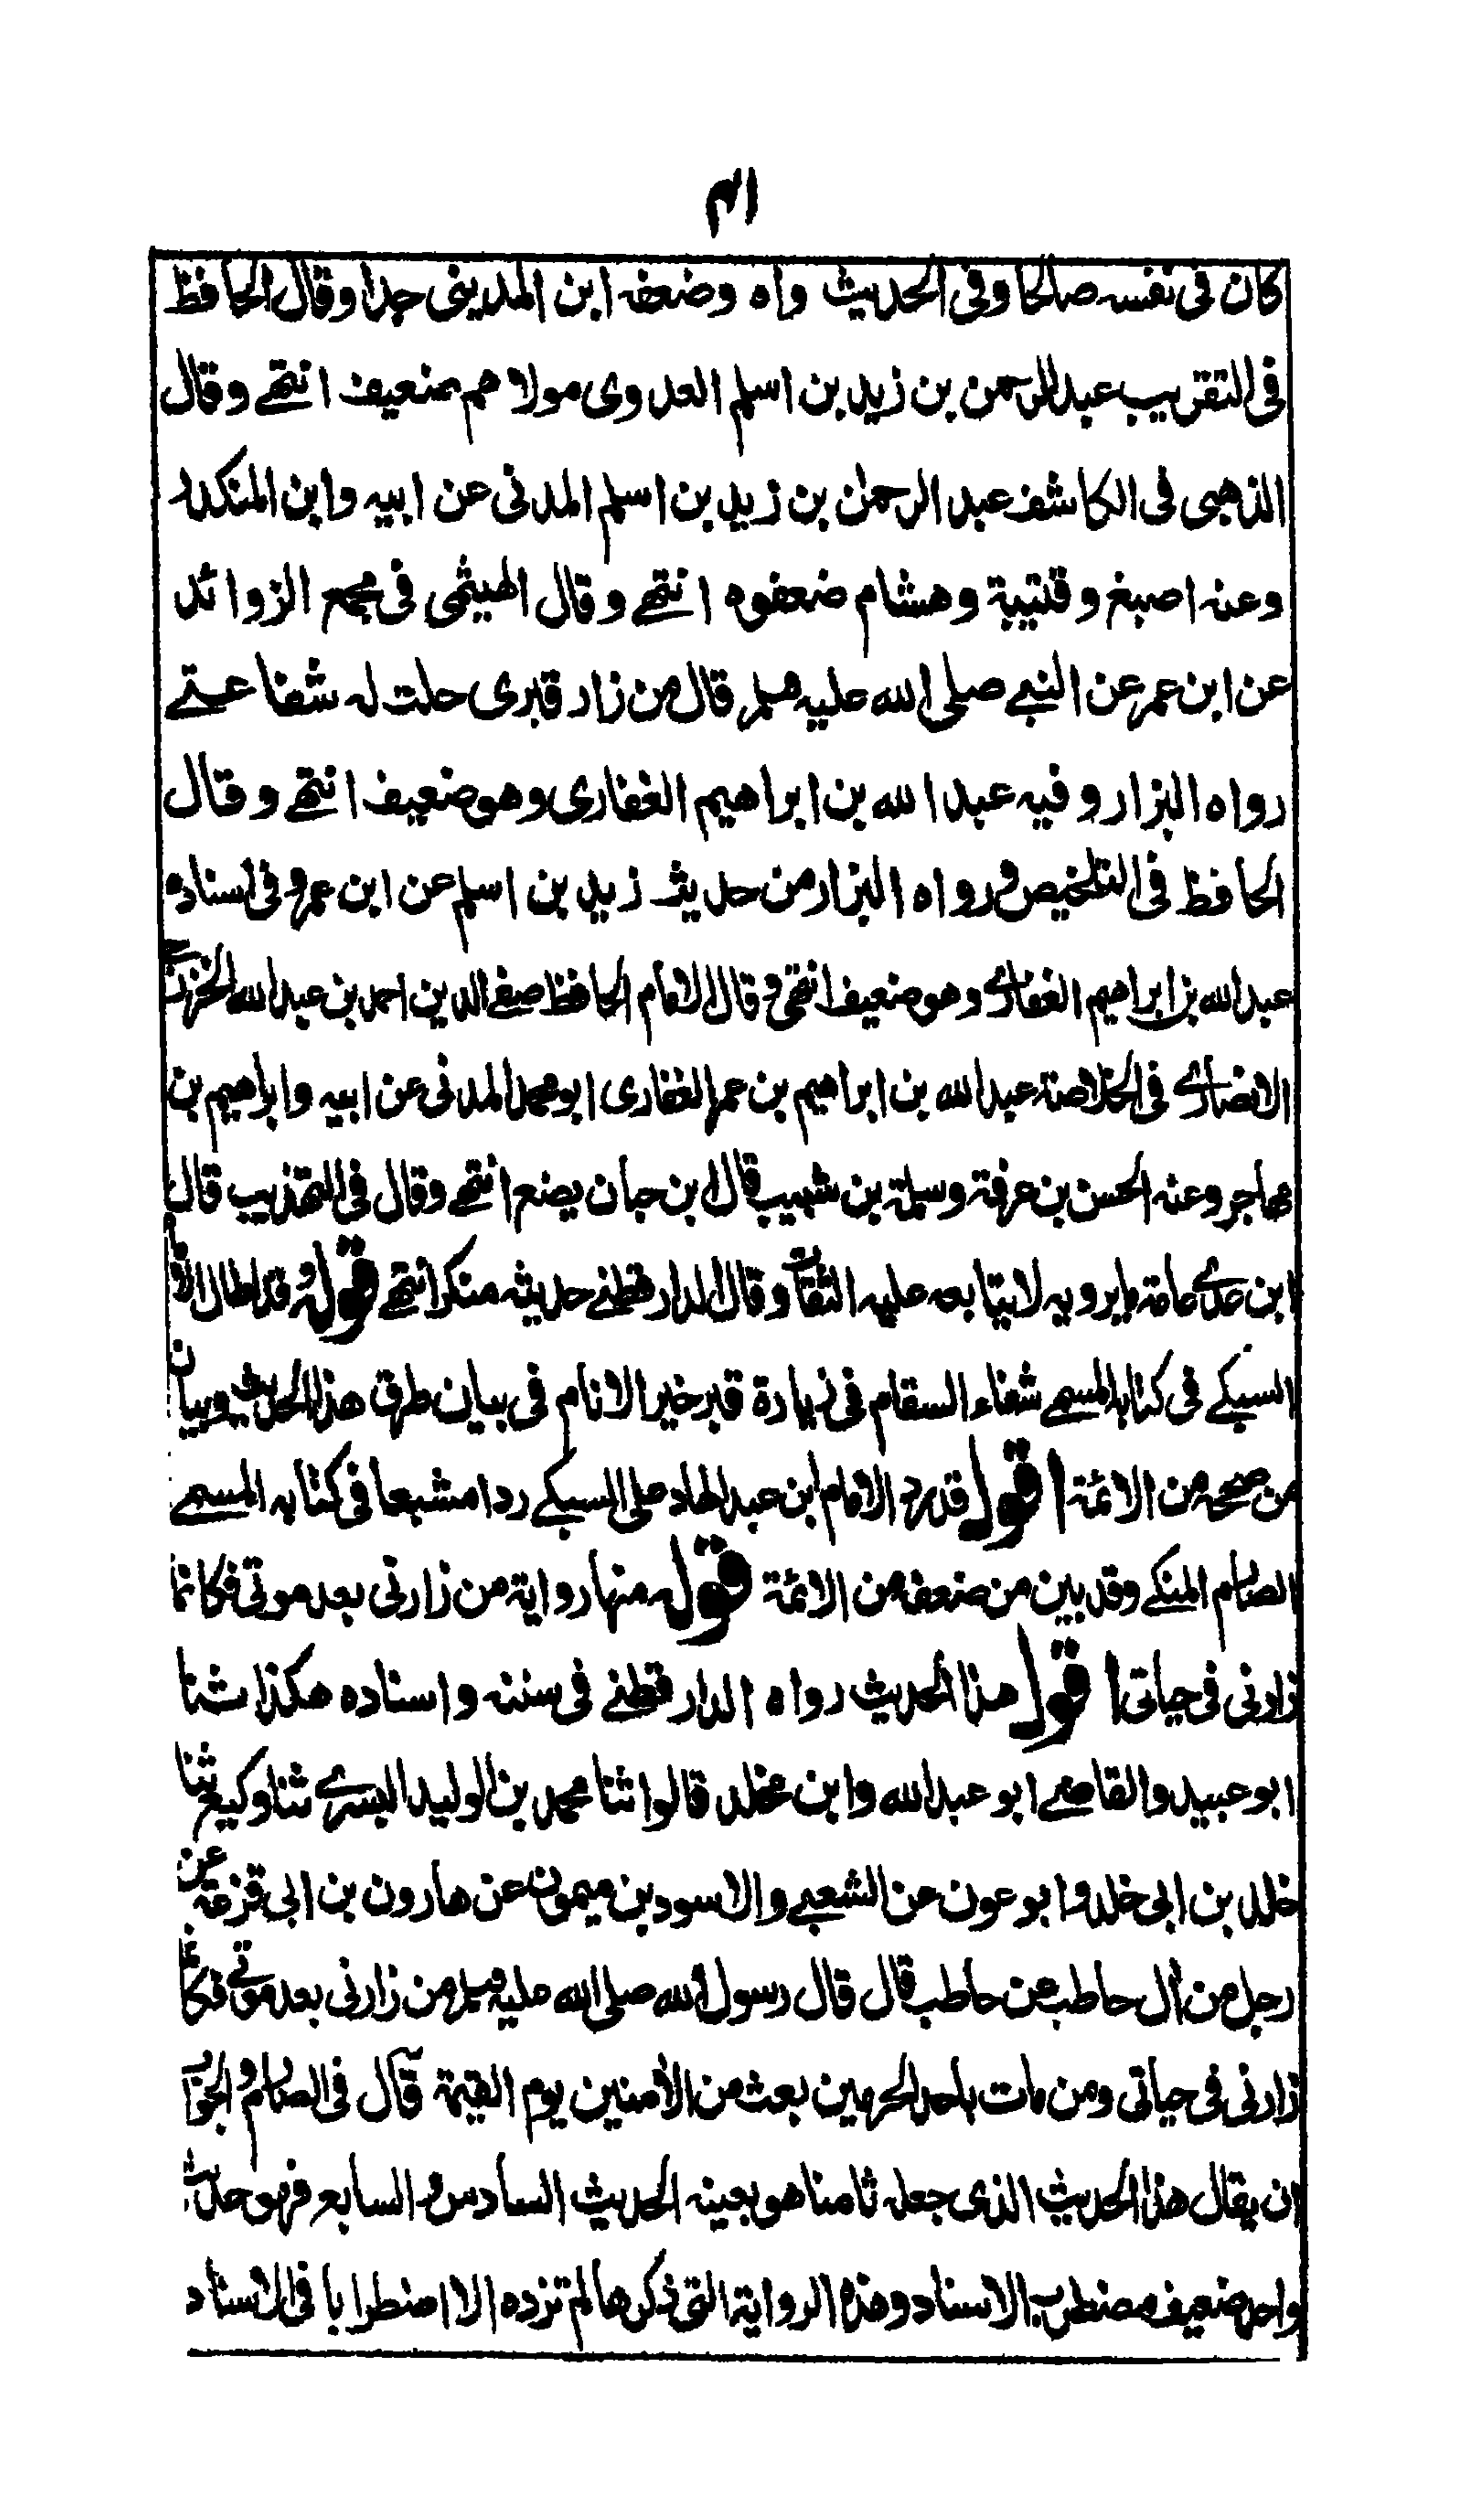 ٤١
كان فى نفسه صالحا وفى الحديث واه وضعفه ابن المدينى جدا وقال الحافظ
فى التقريب عبد الرحمن بن زيد بن اسلم العدوى مولاهم ضعيف انتهى وقال
الذهبى فى الكاشف عبد الرحمن بن زيد بن اسلم المدنى عن ابيه وابن المنكدر
وعنه اصبغ وقتيبة وهشام ضعفوه انتهى وقال الهيثمى فى مجمع الزوائد
عن ابن عمر عن النبى صلى الله عليه وسلم قال من زار قبرى حلت له شفاعتى
رواه البزار وفيه عبد الله بن ابراهيم الغفارى وهو ضعيف انتهى وقال
الحافظ فى التلخيص ورواه البزار من حديث زيد بن اسلم عن ابن عمر وفى اسناده
عبد الله بن ابراهيم الغفارى وهو ضعيف انتهى وقال الامام الحافظ صفى الدين احمد بن عبد الله الخزرجى
الانصارى فى الخلاصة عبد الله بن ابراهيم بن عمر الغفارى ابو محمد المدنى عن ابيه وابراهيم بن
مهاجر وعنه الحسن بن عرفة وسلمة بن شبيب قال ابن حبان يضع انتهى وقال فى التهذيب قال
ابن عدى عامة ما يرويه لا يتابعه عليه الثقات وقال الدارقطنى حديثه منكر انتهى قوله قد اطال الامام
السبكى فى كتابه المسمى شفاء السقام فى زيارة قبر خير الانام فى بيان طرق هذا الحديث وبيان
من صححه من الائمة اقول قد رد الامام ابن عبد الهاد على السبكى ردا مشبعا فى كتابه المسمى
الصارم المنكى وقد بين من ضعفه من الائمة قوله منها رواية من زارنى بعد موتى فكانما
زارنى فى حياتى اقول هذا الحديث رواه الدارقطنى فى سننه واسناده هكذا حدثنا
ابو عبيد والقاضى ابو عبد الله وابن مخلد قالوا ثنا محمد بن الوليد البسرى ثنا وكيع ثنا
خلد بن ابى خلد وابو عون عن الشعبى والاسود بن ميمون عن هارون بن ابى قزعة عن
رجل من آل حاطب عن حاطب قال قال رسول الله صلى الله عليه وسلم من زارنى بعد موتى فكانما
زارنى فى حياتى ومن مات باحد الحرمين بعث من الآمنين يوم القيمة قال فى الصارم والجواب
ان يقال هذا الحديث الذى جعله ثامنا هو بعينه الحديث السادس والسابع فهو حديث
واحد ضعيف مضطرب الاسناد وهذه الرواية التى ذكرها لم تزده الا اضطرابا فى الاسناد